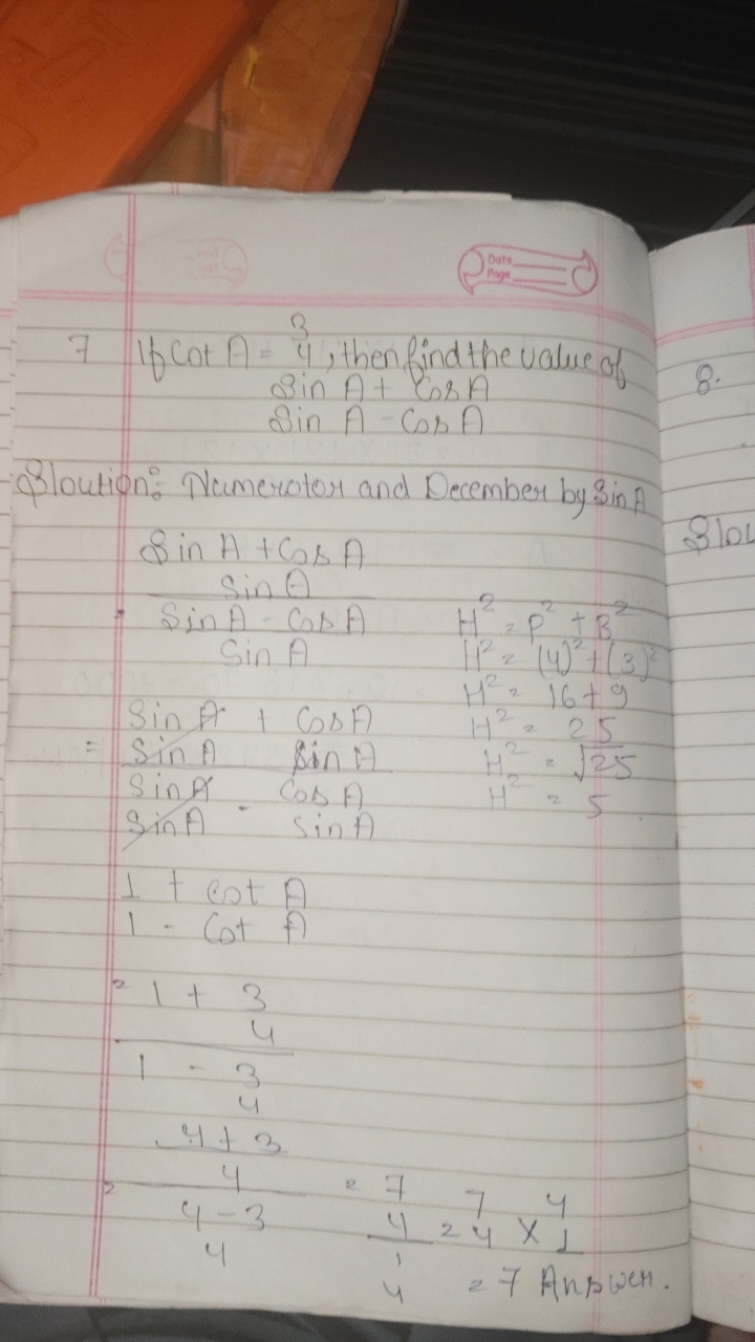 Date
Page
3
7 If Cot A = 4, then find the value of
Sin A + Cos A
Sin A - Cos A
8.
Sloution: Numerator and December by Sin A
Slou
Sin A + Cos A
Sin A
Sin A - Cos A
Sin A
H² = P² + B²
H² = (4)² + (3)²
H² = 16 + 9
H² = 25
H² = √25
H² = 5
Sin A + Cos A
= Sin A Sin A
Sin A - Cos A
Sin A Sin A
1 + cot A
1 - Cot A
= 1 + 3
4
1 - 3
4
4 + 3
4
=
4 - 3
4
= 7 7 4
4 = 4 × 1
1
4 = 7 Answer.